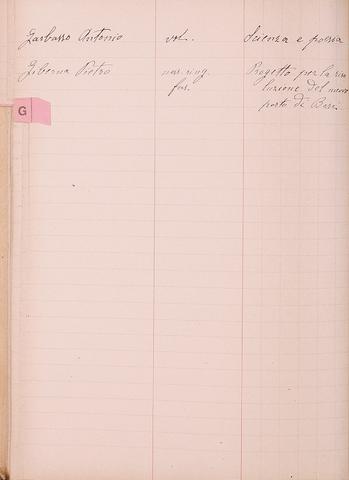 Garbasso Antonio vol. Scienza e poesia
Giberna Pietro nav. ring. Progetto per la riso
fas. luzione del nuovo
porto di Bari
G